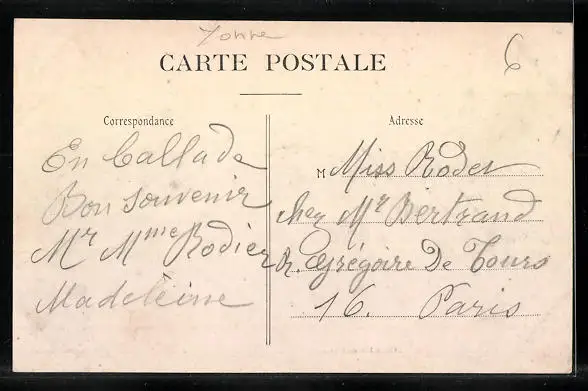 Yonne
6
CARTE POSTALE
Correspondance
Adresse
En Ballade
Bon souvenir
Mr Mme Rodier
Madeleine
M Miss Roder
chez Mr Bertrand
R. Grégoire De Tours
16. Paris